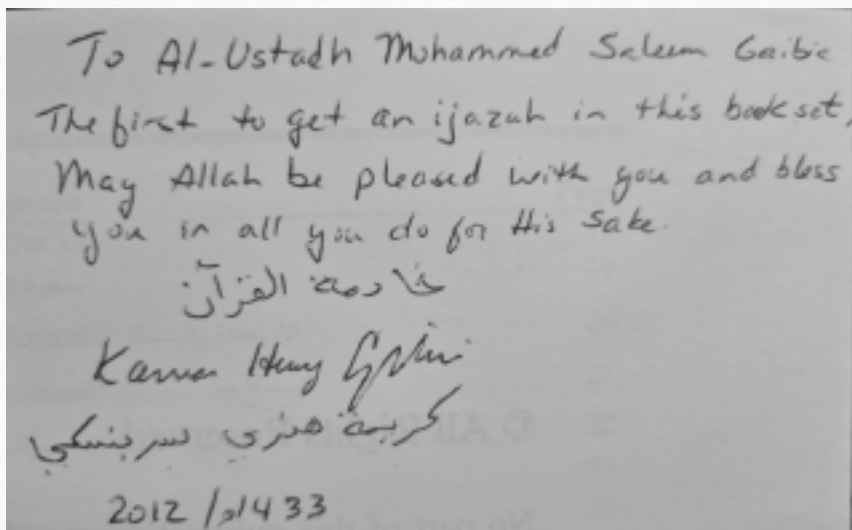 To Al-Ustadh Mohammed Saleem Gaibie
The first to get an ijazah in this book set,
May Allah be pleased with you and bless
you in all you do for His sake.
خادمة القرآن
Henry
كريمة هنري سربنسكي
2012 /1433